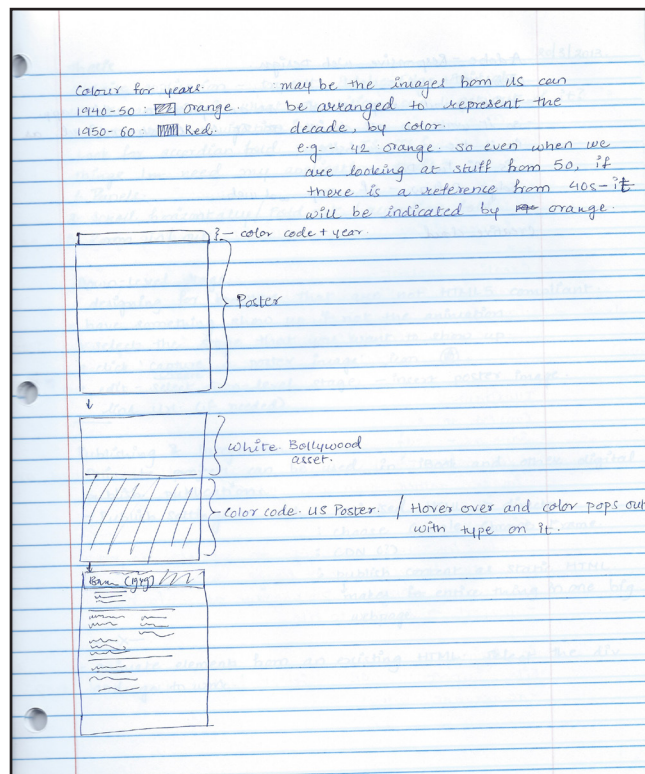 Colour for years.
1940-50: orange.
1950-60: Red.
may be the images from US can
be arranged to represent the
decade, by color.
e.g - 42 orange. so even when we
are looking at stuff from 50, if
there is a reference from 40s - it
will be indicated by orange.
color code + year.
Poster
White Bollywood
asset.
Color code. US Poster. / Hover over and color pops out
with type on it.